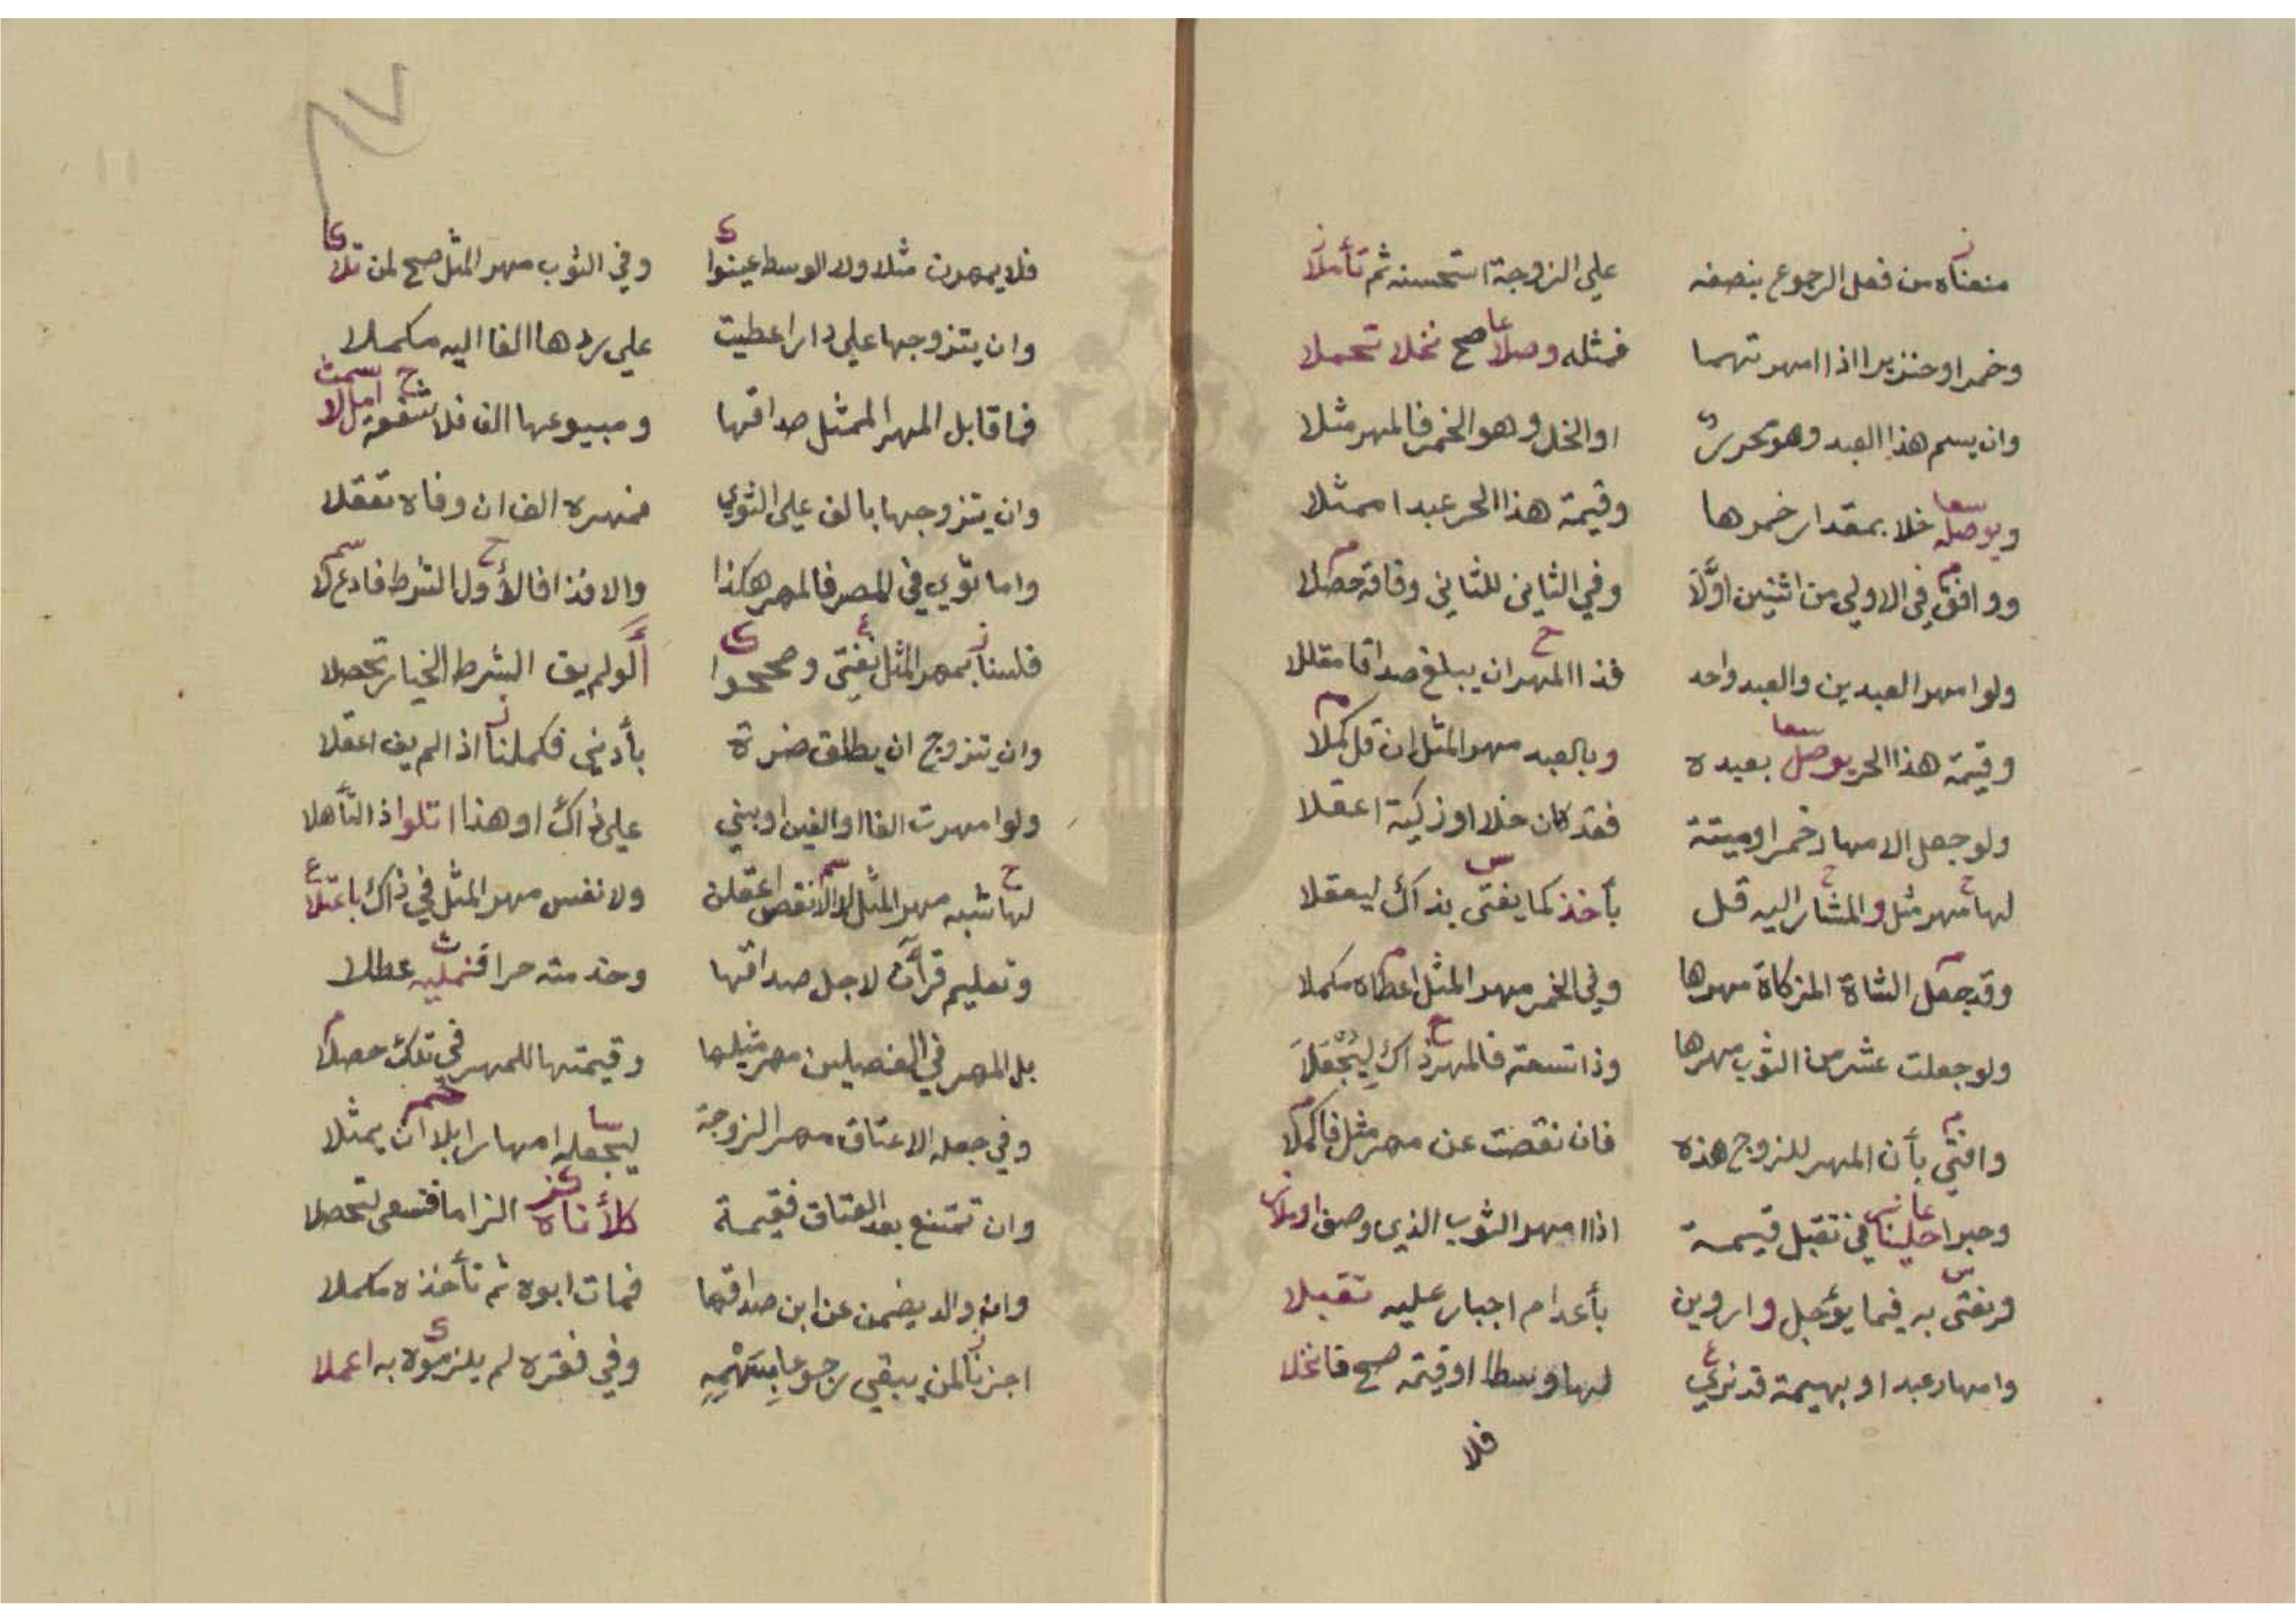 منعناه من فعل الرجوع بنصفه علي الزوجة استحسنه ثم تأملا
وخمرا وخنزيرا اذا امهرتهما فمثله وصلا صح نخلا تحملا
وان يسم هذا العبد وهو تحرر او الخل وهو الخمر فالمهر مثلا
ويوصله خلا بمقدار خمرها وقيمة هذا الحر عبدا ممثلا
ووافق في الاولي من اثنين اولا وفي الثاني للثاني وفاقه حصلا
ولو امهر العبدين والعبد واحد فذا المهر ان يبلغ صداقا مقللا
وقيمة هذا الحر يوصل بعيده وبالعبد مهر المثل ان قل كملا
ولو جعل الامهار خمرا وميتة فقد كان خلا او زكية اعقلا
لها مهر مثل والمشار اليه قل بأخذ كما يفتى بذاك ليعقلا
وقد جعل الشاة المزكاة مهرها وفي الخمر مهر المثل اعطاه مكملا
ولو جعلت عشر من الثوب مهرها وذا تسعة فالمهر ذاك ليجعلا
وافتي بأن المهر للزوج هذه فان نقصت عن مهر مثل فاكملا
وجبرا حلينا في تقبل قيمة اذا امهر الثوب الذي وصف
ونفتى به فيما يؤجل واروين بأعدام اجبار عليه تقبلا
وامهار عبد او بهيمة قد نري لها وسطا او قيمة صح فانخلا
فلا
فلا يمهرن مثلا ولا الوسط عينوا وفي الثوب مهر المثل صح لمن تلا
وان يتزوجها على دار اعطيت علي ردها الفا اليه مكملا
فما قابل المهر الممثل صداقها ومبيوعها الف فلا شفعة
وان يتزوجها بالف على الثوي فمهره الف ان وفاه تعقلا
واما نوي في المصر فالمهر هكذا والا فذا فالأول الشرط فادع لا
فلسنا بمهر المثل نفتي وصححوا ألو لم يف الشرط الخيار تحصلا
وان يتزوج ان يطلق ضرة بأدني فكملنا اذا لم يف اعقلا
ولو امهرت الفا او الفين او بني على ذاك او هذا اتلو اذ التأهلا
لها شبه مهر المثل لا الانقص اعقلن ولا نفس مهر المثل في ذاك باعتلا
وتعليم قرآن لاجل صداقها وخدمته حرا عطلا
بل المهر في الفصيلين مهر مثيلها وقيمتها للمهر في تلك حصلا
وفي جعله الاعتاق مهر الزوجة ليجعله امهارا بلا ان يمثلا
وان تمتنع بعد العتاق فقيمة كلأناه الزاما فتسعى لتحصلا
وان والد يضمن عن ابن صداقها فمات ابوه ثم تأخذه مكملا
اجزنا لمن يبقي رجوعا بسهمه وفي فقره لم يلزموه به اعملا